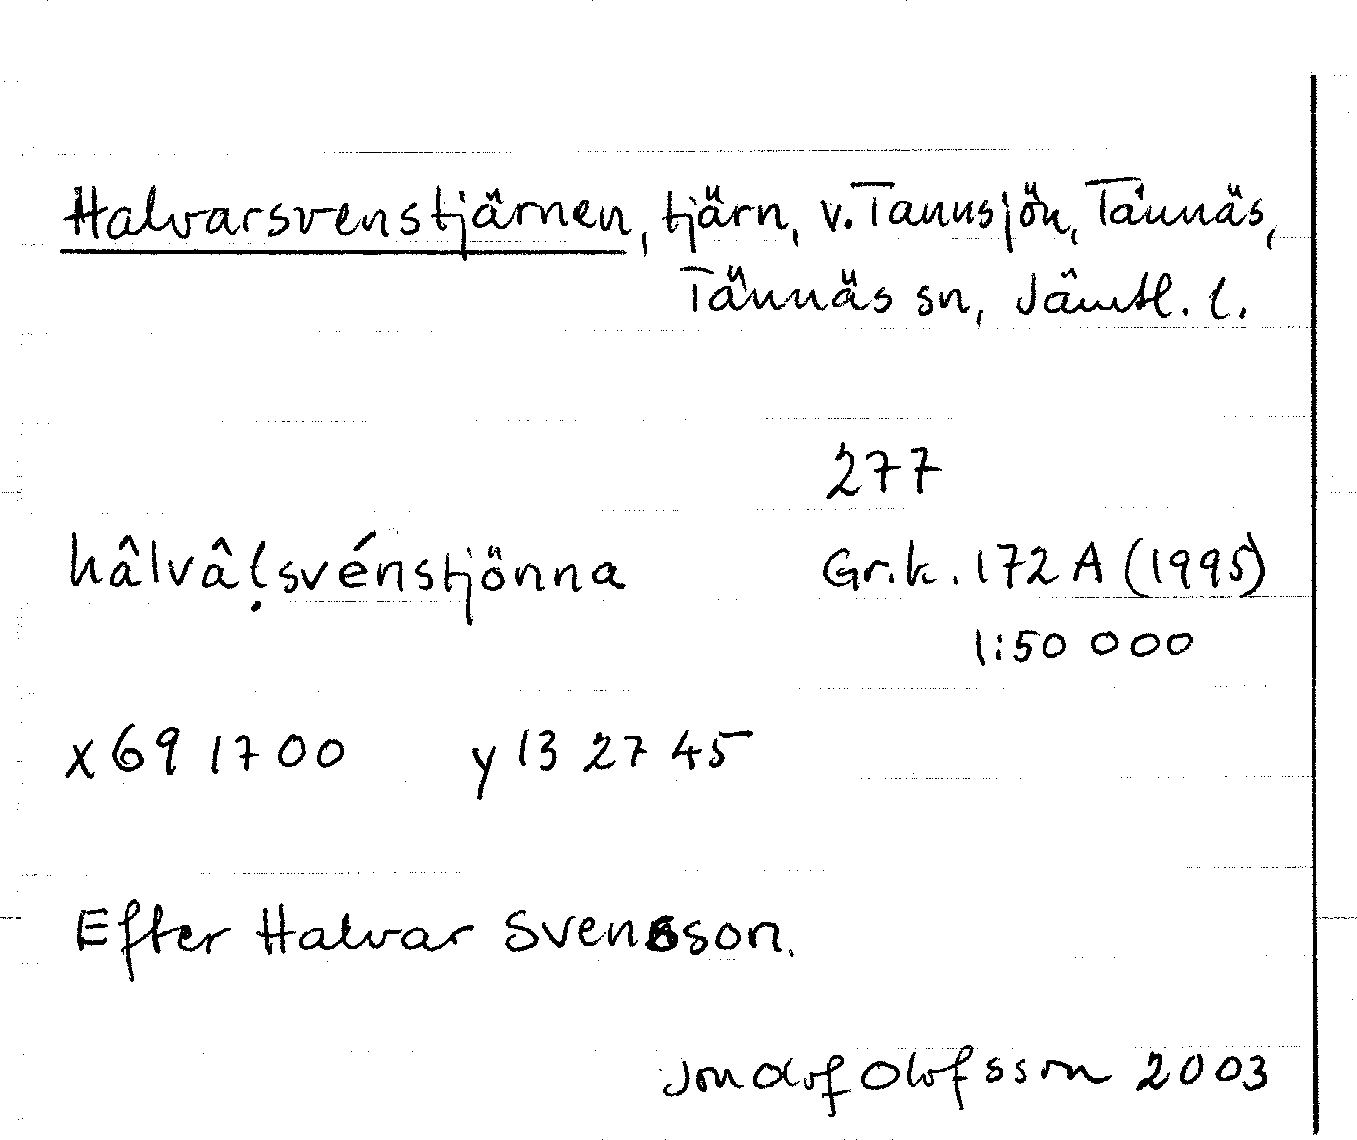 Halvarsvenstjärnen, tjärn, v. Tannsjön, Tännäs,
Tännäs sn, Jämtl. l.
277
hâlvâḷsvénstjönna Gr.k. 172 A (1995)
1:50 000
x 69 17 00 y 13 27 45
Efter Halvar Svensson.
Jon Olof Olofsson 2003